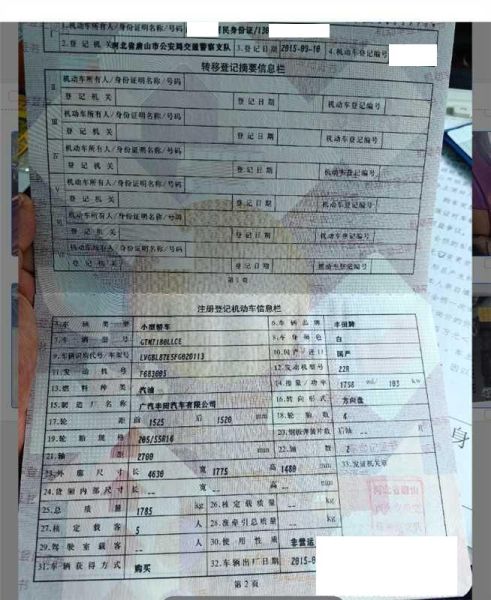 民身份证/130
2.登 记 机 关 河北省唐山市公安局交通警察支队 3.登记日期 2015-03-10 4.机动车登记编号
转移登记摘要信息栏
Ⅱ 机动车所有人/身份证明名称/号码
登 记 机 关 登记日期 机动车登记编号
Ⅲ 机动车所有人/身份证明名称/号码
登 记 机 关 登记日期 机动车登记编号
Ⅳ 机动车所有人/身份证明名称/号码
登 记 机 关 登记日期 机动车登记编号
Ⅴ 机动车所有人/身份证明名称/号码
登 记 机 关 登记日期 机动车登记编号
Ⅵ 机动车所有人/身份证明名称/号码
登 记 机 关 登记日期 机动车登记编号
Ⅶ 机动车所有人/身份证明名称/号码
登 记 机 关 登记日期 机动车登记编号
第 1 页
注册登记机动车信息栏
5.车 辆 类 型 小型轿车 6.车 辆 品 牌 丰田牌
7.车 辆 型 号 GTM7180LLCE 8.车 身 颜 色 白
9.车辆识别代号/车架号 LVGBL87E5FG020113 10.国产/进口 国产
11.发 动 机 号 T683005 12.发动机型号 2ZR
13.燃 料 种 类 汽油 14.排量/功率 1798 ml/ 103 kw
15.制 造 厂 名 称 广汽丰田汽车有限公司 16.转 向 形 式 方向盘
17.轮 距 前 1525 后 1520 mm 18.轮 胎 数 4
19.轮 胎 规 格 205/55R16 20.钢板弹簧片数 后轴 -- 片
21.轴 距 2700 mm 22.轴 数 2
23.外 廓 尺 寸 长 4630 宽 1775 高 1480 mm 33.发证机关章
24.货厢内部尺寸 长 -- 宽 -- 高 -- mm
25.总 质 量 1785 kg 26.核定载质量 -- kg
27.核 定 载 客 5 人 28.准牵引总质量 -- kg
29.驾驶室载客 -- 人 30.使 用 性 质 非营运
31.车辆获得方式 购买 32.车辆出厂日期 2015-0
第 2 页
身